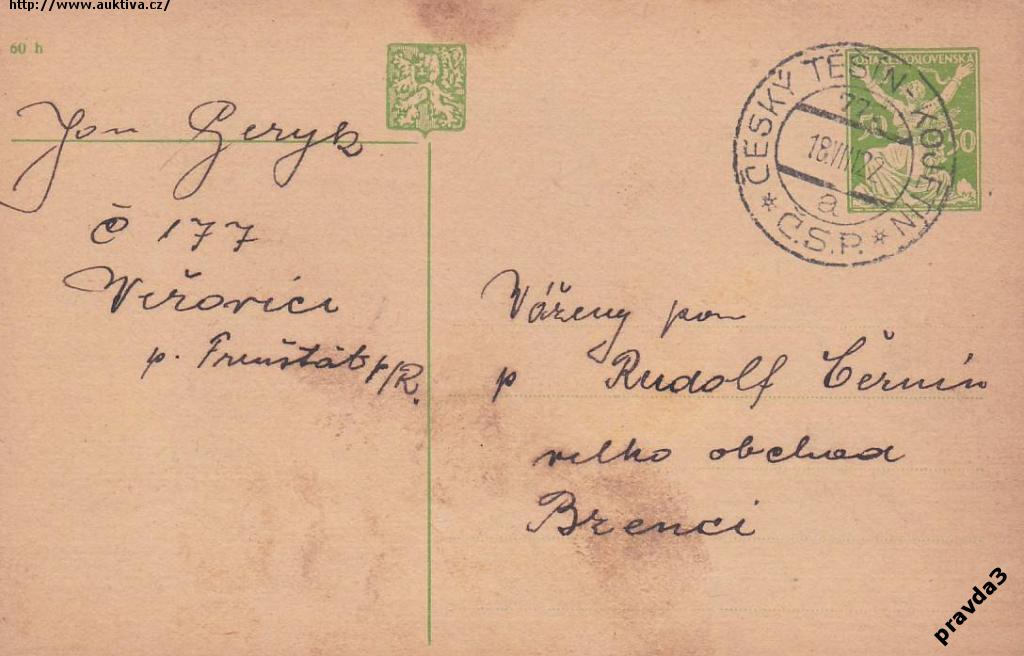 http://www.auktiva.cz/
60 h
Jan Geryk
Č 177
Veřovice
p. Frenštát p/R.
POŠTA ČESKOSLOVENSKÁ
ČESKÝ TĚŠÍN-KOŠE
18.VIII.22
a
* Č.S.P. *
Vážený pan
p Rudolf Černín
velko obchod
Brenci
pravda3